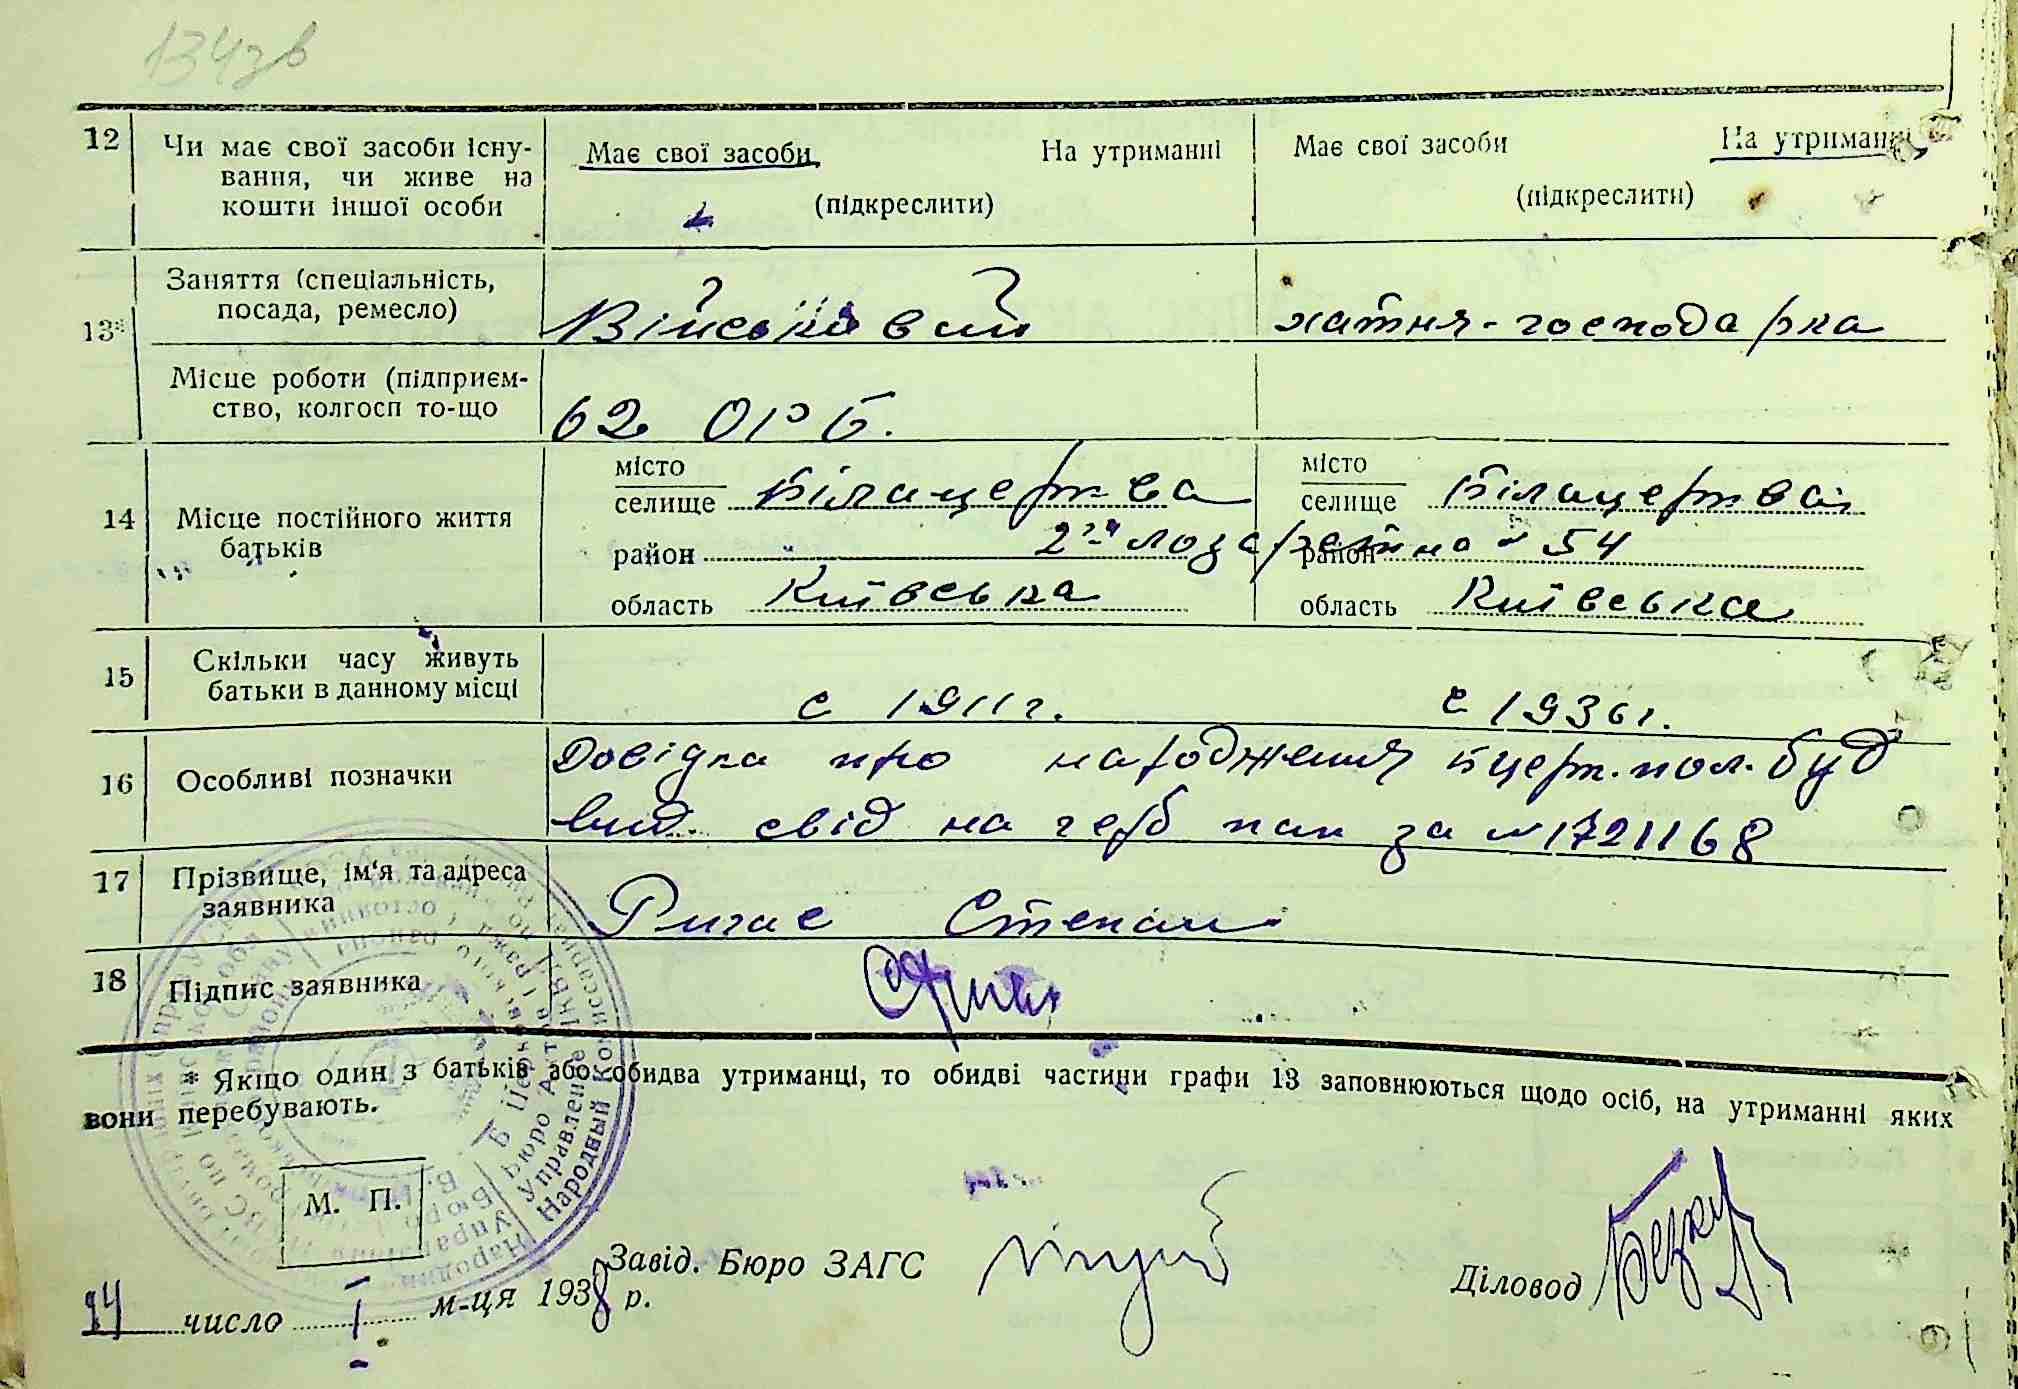 134зв
12 Чи має свої засоби існу- Має свої засоби На утриманні Має свої засоби На утриманні
вання, чи живе на
кошти іншої особи (підкреслити) (підкреслити)
Заняття (спеціальність,
посада, ремесло) Військовий хатня-господарка
13*
Місце роботи (підприєм-
ство, колгосп то-що 62 ОРБ.
місто місто
селище Білацерква селище Білацерква
14 Місце постійного життя
батьків район 2га Лозаретна № 54 район
область Київська область Київська
15 Скільки часу живуть
батьки в данному місці с 1911 г. с 1936 г.
Довідка про народження Бцерк. пол. буд
16 Особливі позначки
вид свід на герб пап за № 1721168
17 Прізвище, ім'я та адреса
заявника Ригас Степан
18 Підпис заявника
* Якщо один з батьків або обидва утриманці, то обидві частини графи 13 заповнюються щодо осіб, на утриманні яких
вони перебувають.
М. П.
Завід. Бюро ЗАГС
Діловод
24 число 1 м-ця 1938 р.
Народный Комиссариат
Управление НКВД
Бюро Актов